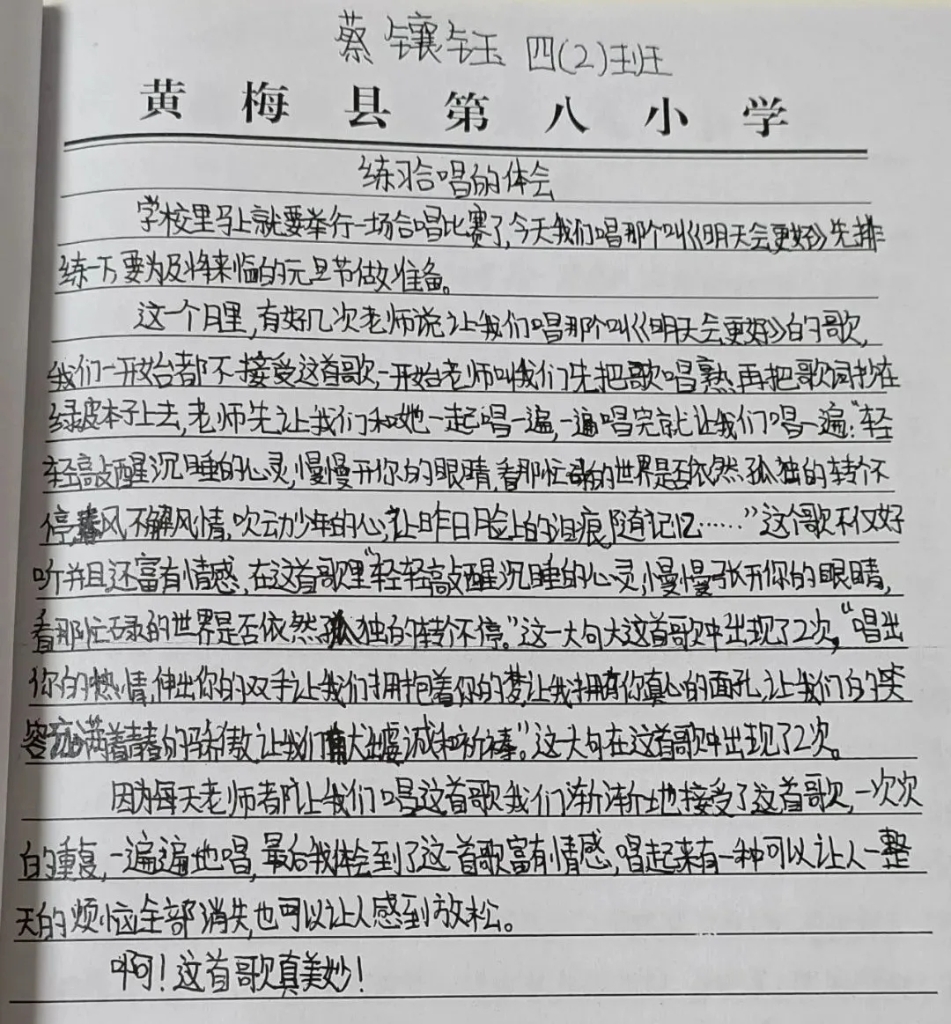 蔡镶钰 四(2)班
黄梅县第八小学
练习合唱的体会
学校里马上就要举行一场合唱比赛了,今天我们唱那个叫《明天会更好》先排
练一下要为及将来临的元旦节做准备。
这个月里,有好几次老师说让我们唱那个叫《明天会更好》的歌,
我们一开始都不接受这首歌,一开始老师叫我们先把歌唱熟,再把歌词抄在
绿皮本子上去,老师先让我们和她一起唱一遍,一遍唱完就让我们唱一遍:“轻
轻敲醒沉睡的心灵,慢慢开你的眼睛,看那忙碌的世界是否依然孤独的转个不
停,春风不解风情,吹动少年的心,让昨日脸上的泪痕,随记忆……”这个歌不仅好
听并且还富有情感,在这首歌里“轻轻敲醒沉睡的心灵,慢慢张开你的眼睛,
看那忙碌的世界是否依然孤独的转个不停。”这一大句大这首歌中出现了2次,“唱出
你的热情,伸出你的双手,让我们拥抱着你的梦,让我拥有你真心的面孔,让我们的笑
容充满着青春的骄傲,让我们虔诚和祈祷。”这大句在这首歌中出现了2次。
因为每天老师都让我们唱这首歌,我们渐渐地接受了这首歌,一次次
的重复,一遍遍地唱,最后我体会到了这一首歌富有情感,唱起来有一种可以让人一整
天的烦恼全部消失,也可以让人感到放松。
啊!这首歌真美妙!